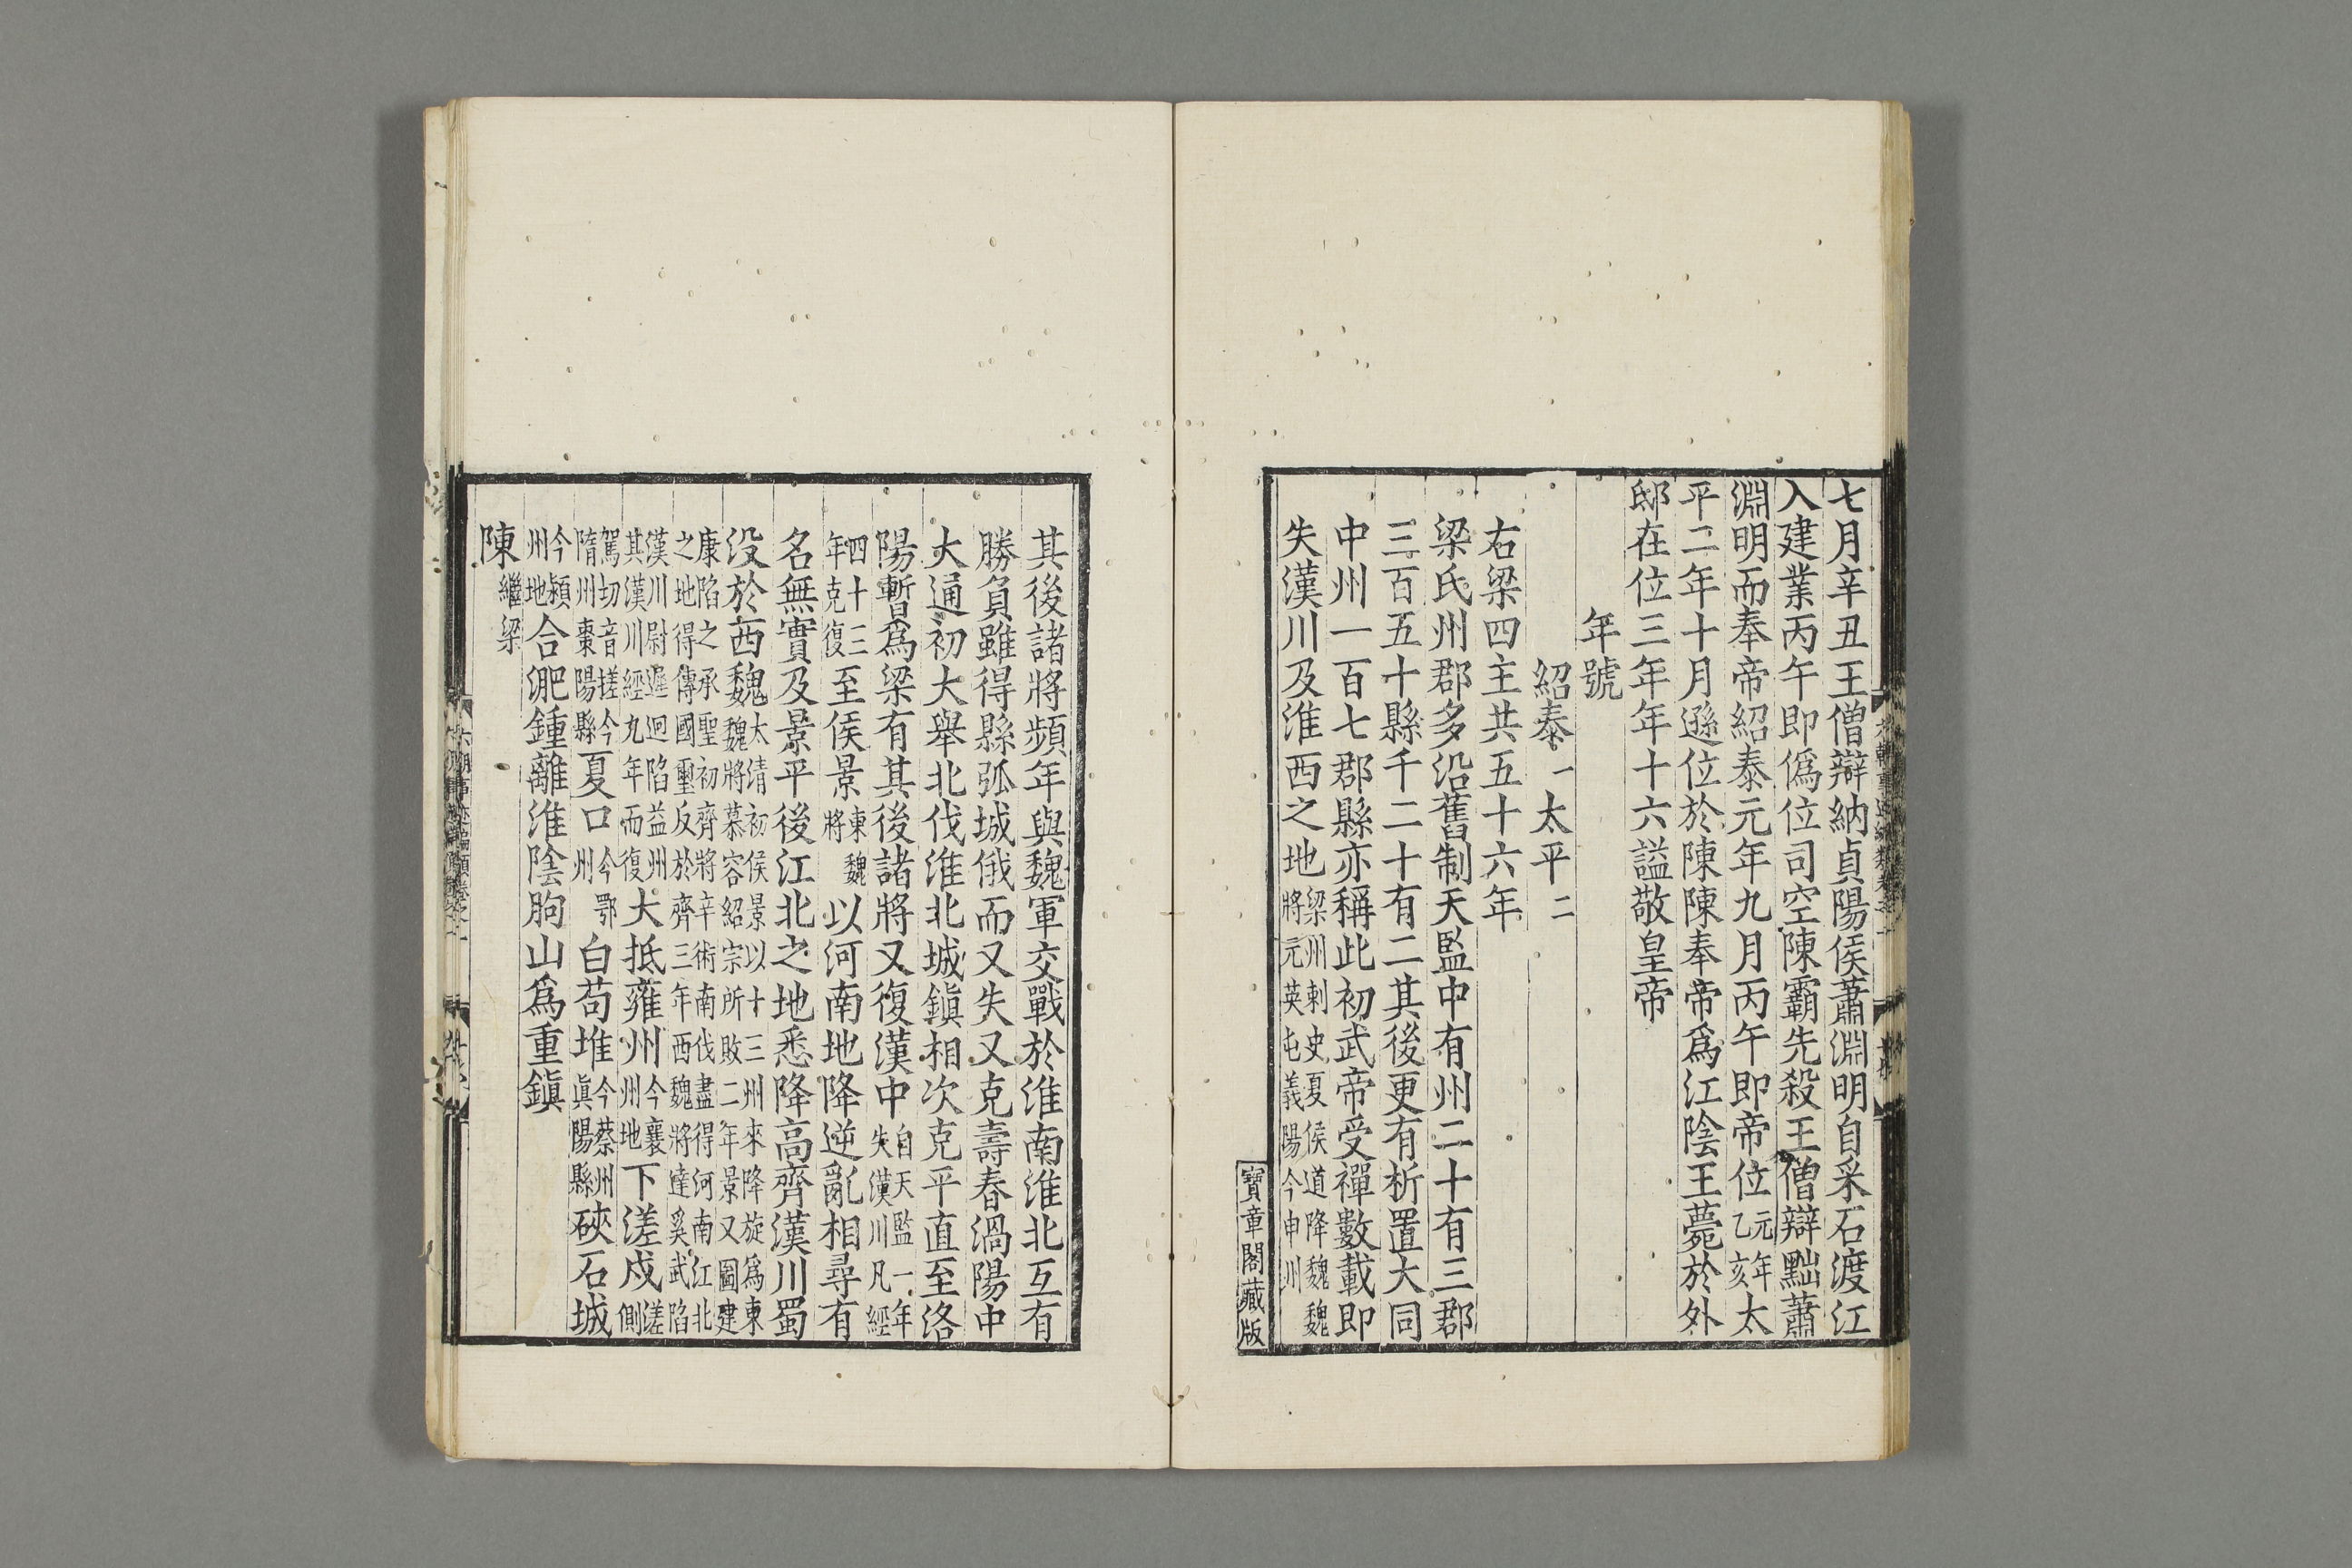 七月辛丑王僧辯納貞陽侯蕭淵明自采石渡江
入建業丙午即僞位司空陳霸先殺王僧辯黜蕭
淵明而奉帝紹泰元年九月丙午即帝位元年乙亥太
平二年十月遜位於陳陳奉帝爲江陰王薨於外
邸在位三年年十六謚敬皇帝
年號
紹泰一太平二
右梁四主共五十六年
梁氏州郡多沿舊制天監中有州二十有三郡
三百五十縣千二十有二其後更有析置大同
中州一百七郡縣亦稱此初武帝受禪數載即
失漢川及淮西之地梁州刺史夏侯道降魏魏將元英屯義陽今申州
寶章閣藏版
其後諸將頻年與魏軍交戰於淮南淮北互有
勝負雖得縣弧城俄而又失又克壽春渦陽中
大通初大舉北伐淮北城鎮相次克平直至洛
陽暫爲梁有其後諸將又復漢中自天監一年失漢川凡經
四十三年克復至侯景東魏將以河南地降逆亂相尋有
名無實及景平後江北之地悉降高齊漢川蜀
没於西魏太清初侯景以十三州來降旋爲東魏將慕容紹宗所敗二年景又圖建
康陷之承聖初齊將辛術南伐盡得河南江北之地得傳國璽反於齊三年西魏將達奚武陷
漢川尉遲迥陷益州其漢川經九年而復大抵雍州今襄州地下溠戍溠側
駕切音搓今隋州棗陽縣夏口今鄂州白苟堆今蔡州真陽縣硤石城
今潁州地合淝鍾離淮陰朐山爲重鎮
陳繼梁